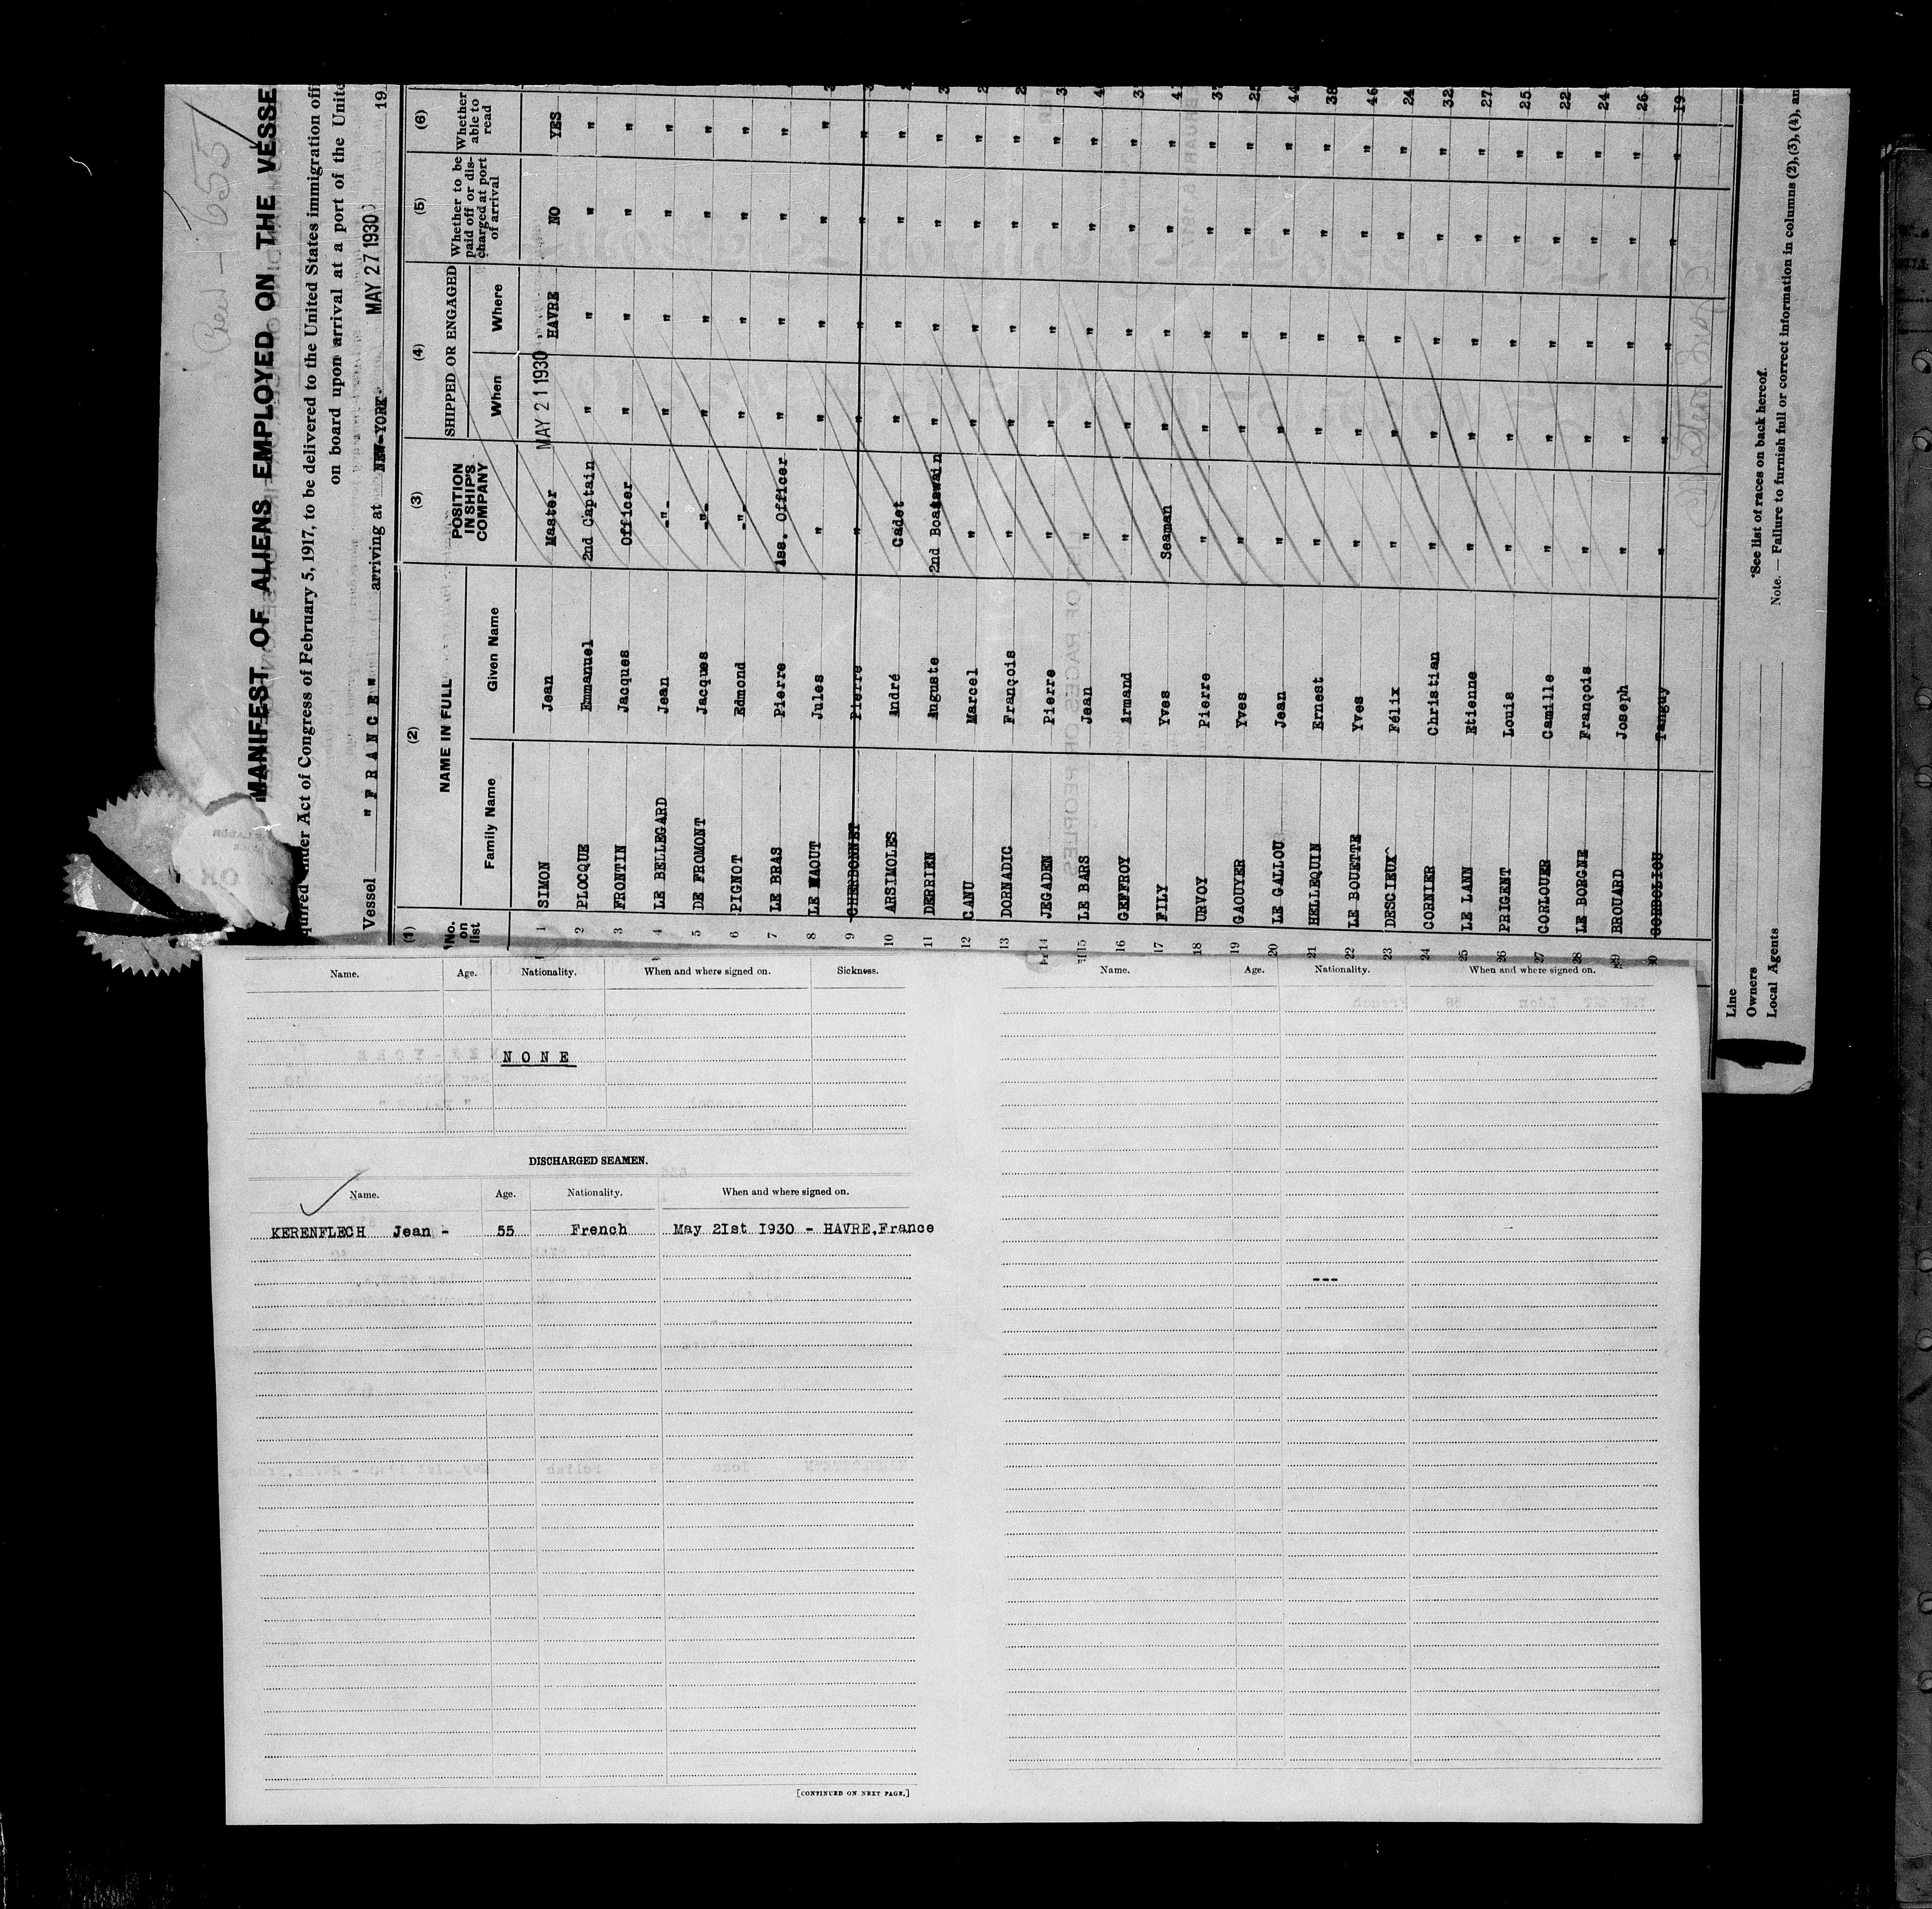 Reel - 655
MANIFEST OF ALIENS EMPLOYED ON THE VESSE
quired under Act of Congress of February 5, 1917, to be delivered to the United States immigration offi
on board upon arrival at a port of the Unite
Vessel "FRANCE" arriving at NEW-YORK. MAY 27 1930 19
(1) (2) (3) (4) (5) (6)
No. on list NAME IN FULL POSITION IN SHIP'S COMPANY SHIPPED OR ENGAGED Whether to be paid off or dis-charged at port of arrival Whether able to read
Family Name Given Name When Where
1 SIMON Jean Master MAY 21 1930 HAVRE NO YES
2 PLOCQUE Emmanuel 2nd Captain " " " "
3 FRONTIN Jacques Officer " " " "
4 LE BELLEGARD Jean -"- " " " "
5 DE FROMONT Jacques -"- " " " "
6 PIGNOT Edmond -"- " " " "
7 LE BRAS Pierre Ass. Officer " " " "
8 LE MAOUT Jules " " " " "
9 CHERBONNET Pierre " " " " "
10 ARSIMOLES André Cadet " " " "
11 DERRIEN Auguste 2nd Boatswain " " " "
12 CANU Marcel " " " " "
13 DORNADIC François " " " " "
14 JEGADEN Pierre " " " " "
15 LE BARS Jean " " " " "
16 GEFFROY Armand " " " " "
17 FILY Yves Seaman " " " "
18 URVOY Pierre " " " " "
19 GAOUYER Yves " " " " "
20 LE GALLOU Jean " " " " " 44
21 HELLEQUIN Ernest " " " " " 38
22 LE BOUETTE Yves " " " " " 46
23 DESCIEUX Félix " " " " " 24
24 CORNIER Christian " " " " " 32
25 LE LANN Etienne " " " " " 27
26 PRIGENT Louis " " " " " 25
27 CORLOUER Camille " " " " " 22
28 LE BORGNE François " " " " " 24
29 BROUARD Joseph " " " " " 26
30 Tanguy " " " " " 19
Line
Owners
Local Agents
*See list of races on back hereof.
Note. — Failure to furnish full or correct information in columns (2), (3), (4), an
Name. Age. Nationality. When and where signed on. Sickness.
NONE
DISCHARGED SEAMEN.
Name. Age. Nationality. When and where signed on.
KERENFLECH Jean - 55 French May 21st 1930 - HAVRE,France
[CONTINUED ON NEXT PAGE.]
Name. Age. Nationality. When and where signed on.
---